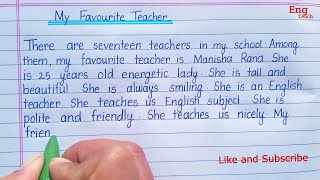 My Favourite Teacher
Eng
Teach
There are seventeen teachers in my school. Among
them, my favourite teacher is Manisha Rana. She
is 25 years old energetic lady. She is tall and
beautiful. She is always smiling. She is an English
teacher. She teaches us English subject. She is
polite and friendly. She teaches us nicely. My
frien
Like and Subscribe